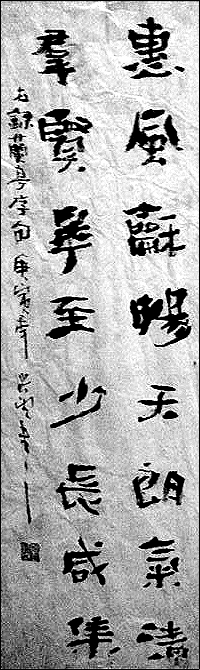 惠風龢暢天朗氣清
羣賢畢至少長咸集
右錄蘭亭字句庚寅年